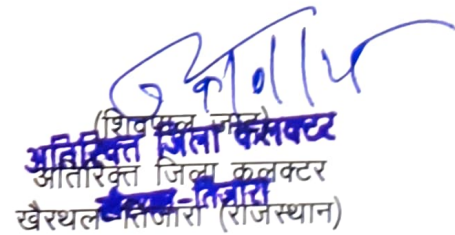 (शिवपाल जाट)
अतिरिक्त जिला कलक्टर
अतिरिक्त जिला कलक्टर
खैरथल-तिजारा
खैरथल-तिजारा (राजस्थान)